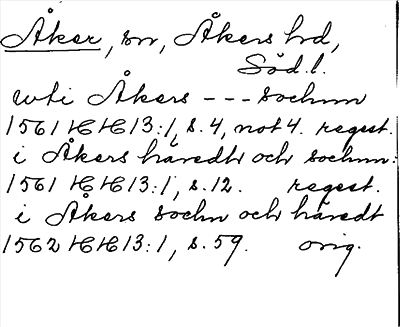 Åker, sn, Åkers hd,
Söd.l.
wti Åkers --- sochnn
1561 HH 13:1, s. 4, not 4. regest.
i Åkers häredh och sochnn:
1561 HH 13:1, s. 12. regest.
i Åkers sochn och häredt
1562 HH 13:1, s. 59. orig.